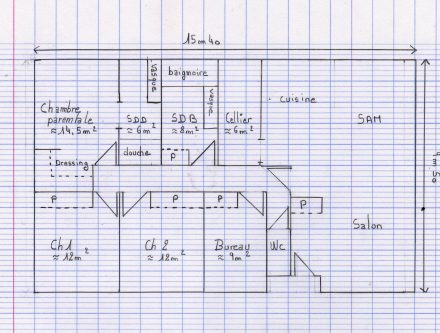 15m40
Vasque
baignoire
Vasque
Chambre
parentale
≈14,5m²
SDD
≈6m²
SDB
≈8m²
Cellier
≈6m²
cuisine
SAM
9m50
douche
P
Dressing
P
P
P
P
Salon
Ch1
≈12m²
Ch 2
≈12m²
Bureau
≈9m²
Wc